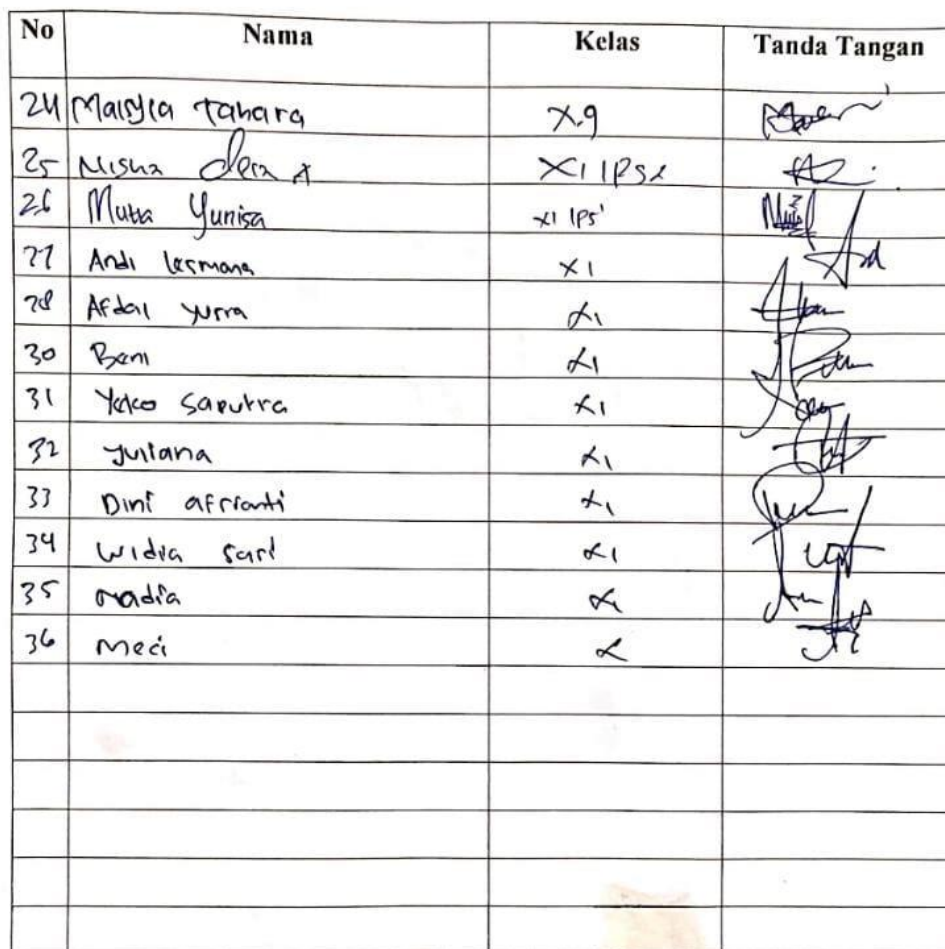 No Nama Kelas Tanda Tangan
24 Maisyla Tahara X.9
25 Nisha XI IPS2
26 Mutia Yunisa XI IPS1
27 Andi Lesmana XI
28 Afdal Yusra XI
30 Beni XI
31 Yoko Saputra XI
32 Yuliana XI
33 Dini afrianti XI
34 Widia Sari XI
35 nadia XI
36 Meci X